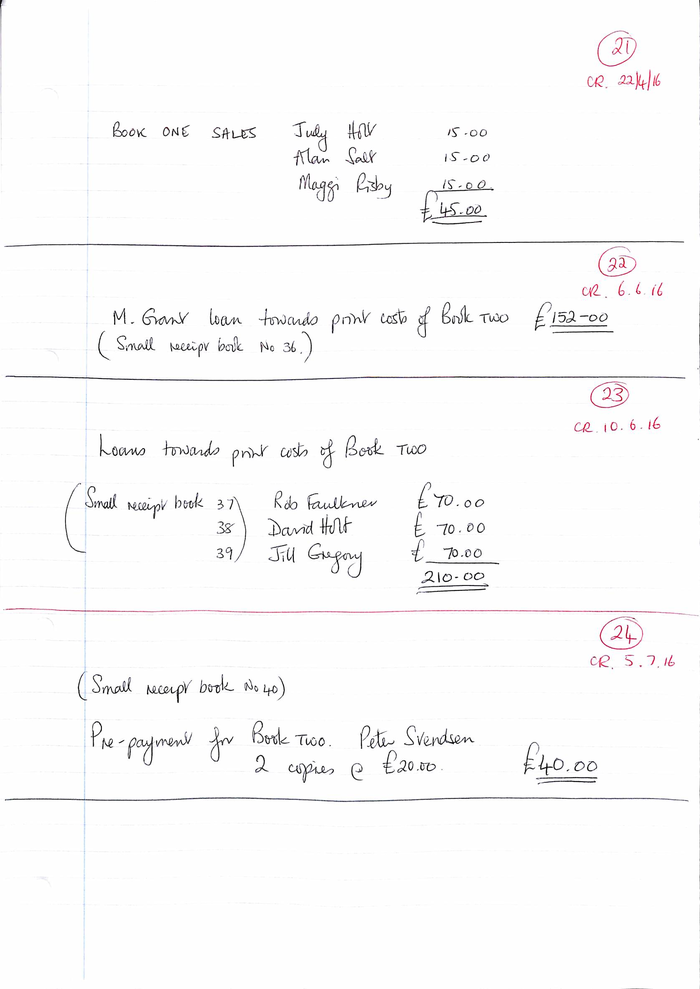 21
CR. 22/4/16
BOOK ONE SALES Judy Holt 15.00
Alan Salt 15.00
Maggi Risby 15.00
£45.00
22
CR. 6.6.16
M. Grant loan towards print costs of Book Two £152-00
(Small receipt book No 36.)
23
CR. 10.6.16
Loans towards print costs of Book Two
(Small receipt book 37) Rob Faulkner £70.00
38 David Holt £ 70.00
39) Jill Gregory £ 70.00
210.00
24
CR. 5.7.16
(Small receipt book No 40)
Pre-payment for Book Two. Peter Svendsen
2 copies @ £20.00. £40.00